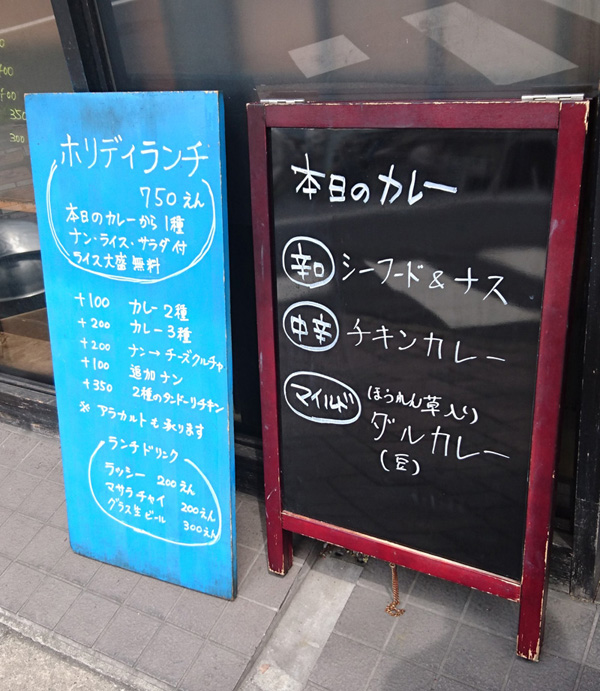 ホリディランチ
750えん
本日のカレーから1種
ナン・ライス・サラダ付
ライス大盛無料
+100 カレー2種
+200 カレー3種
+200 ナン→チーズクルチャ
+100 追加ナン
+350 2種のタンドーリチキン
※アラカルトも承ります
ランチドリンク
ラッシー 200えん
マサラチャイ 200えん
グラス生ビール 300えん
本日のカレー
辛口 シーフード&ナス
中辛 チキンカレー
マイルド (ほうれん草入り)
ダルカレー
(豆)
350
300